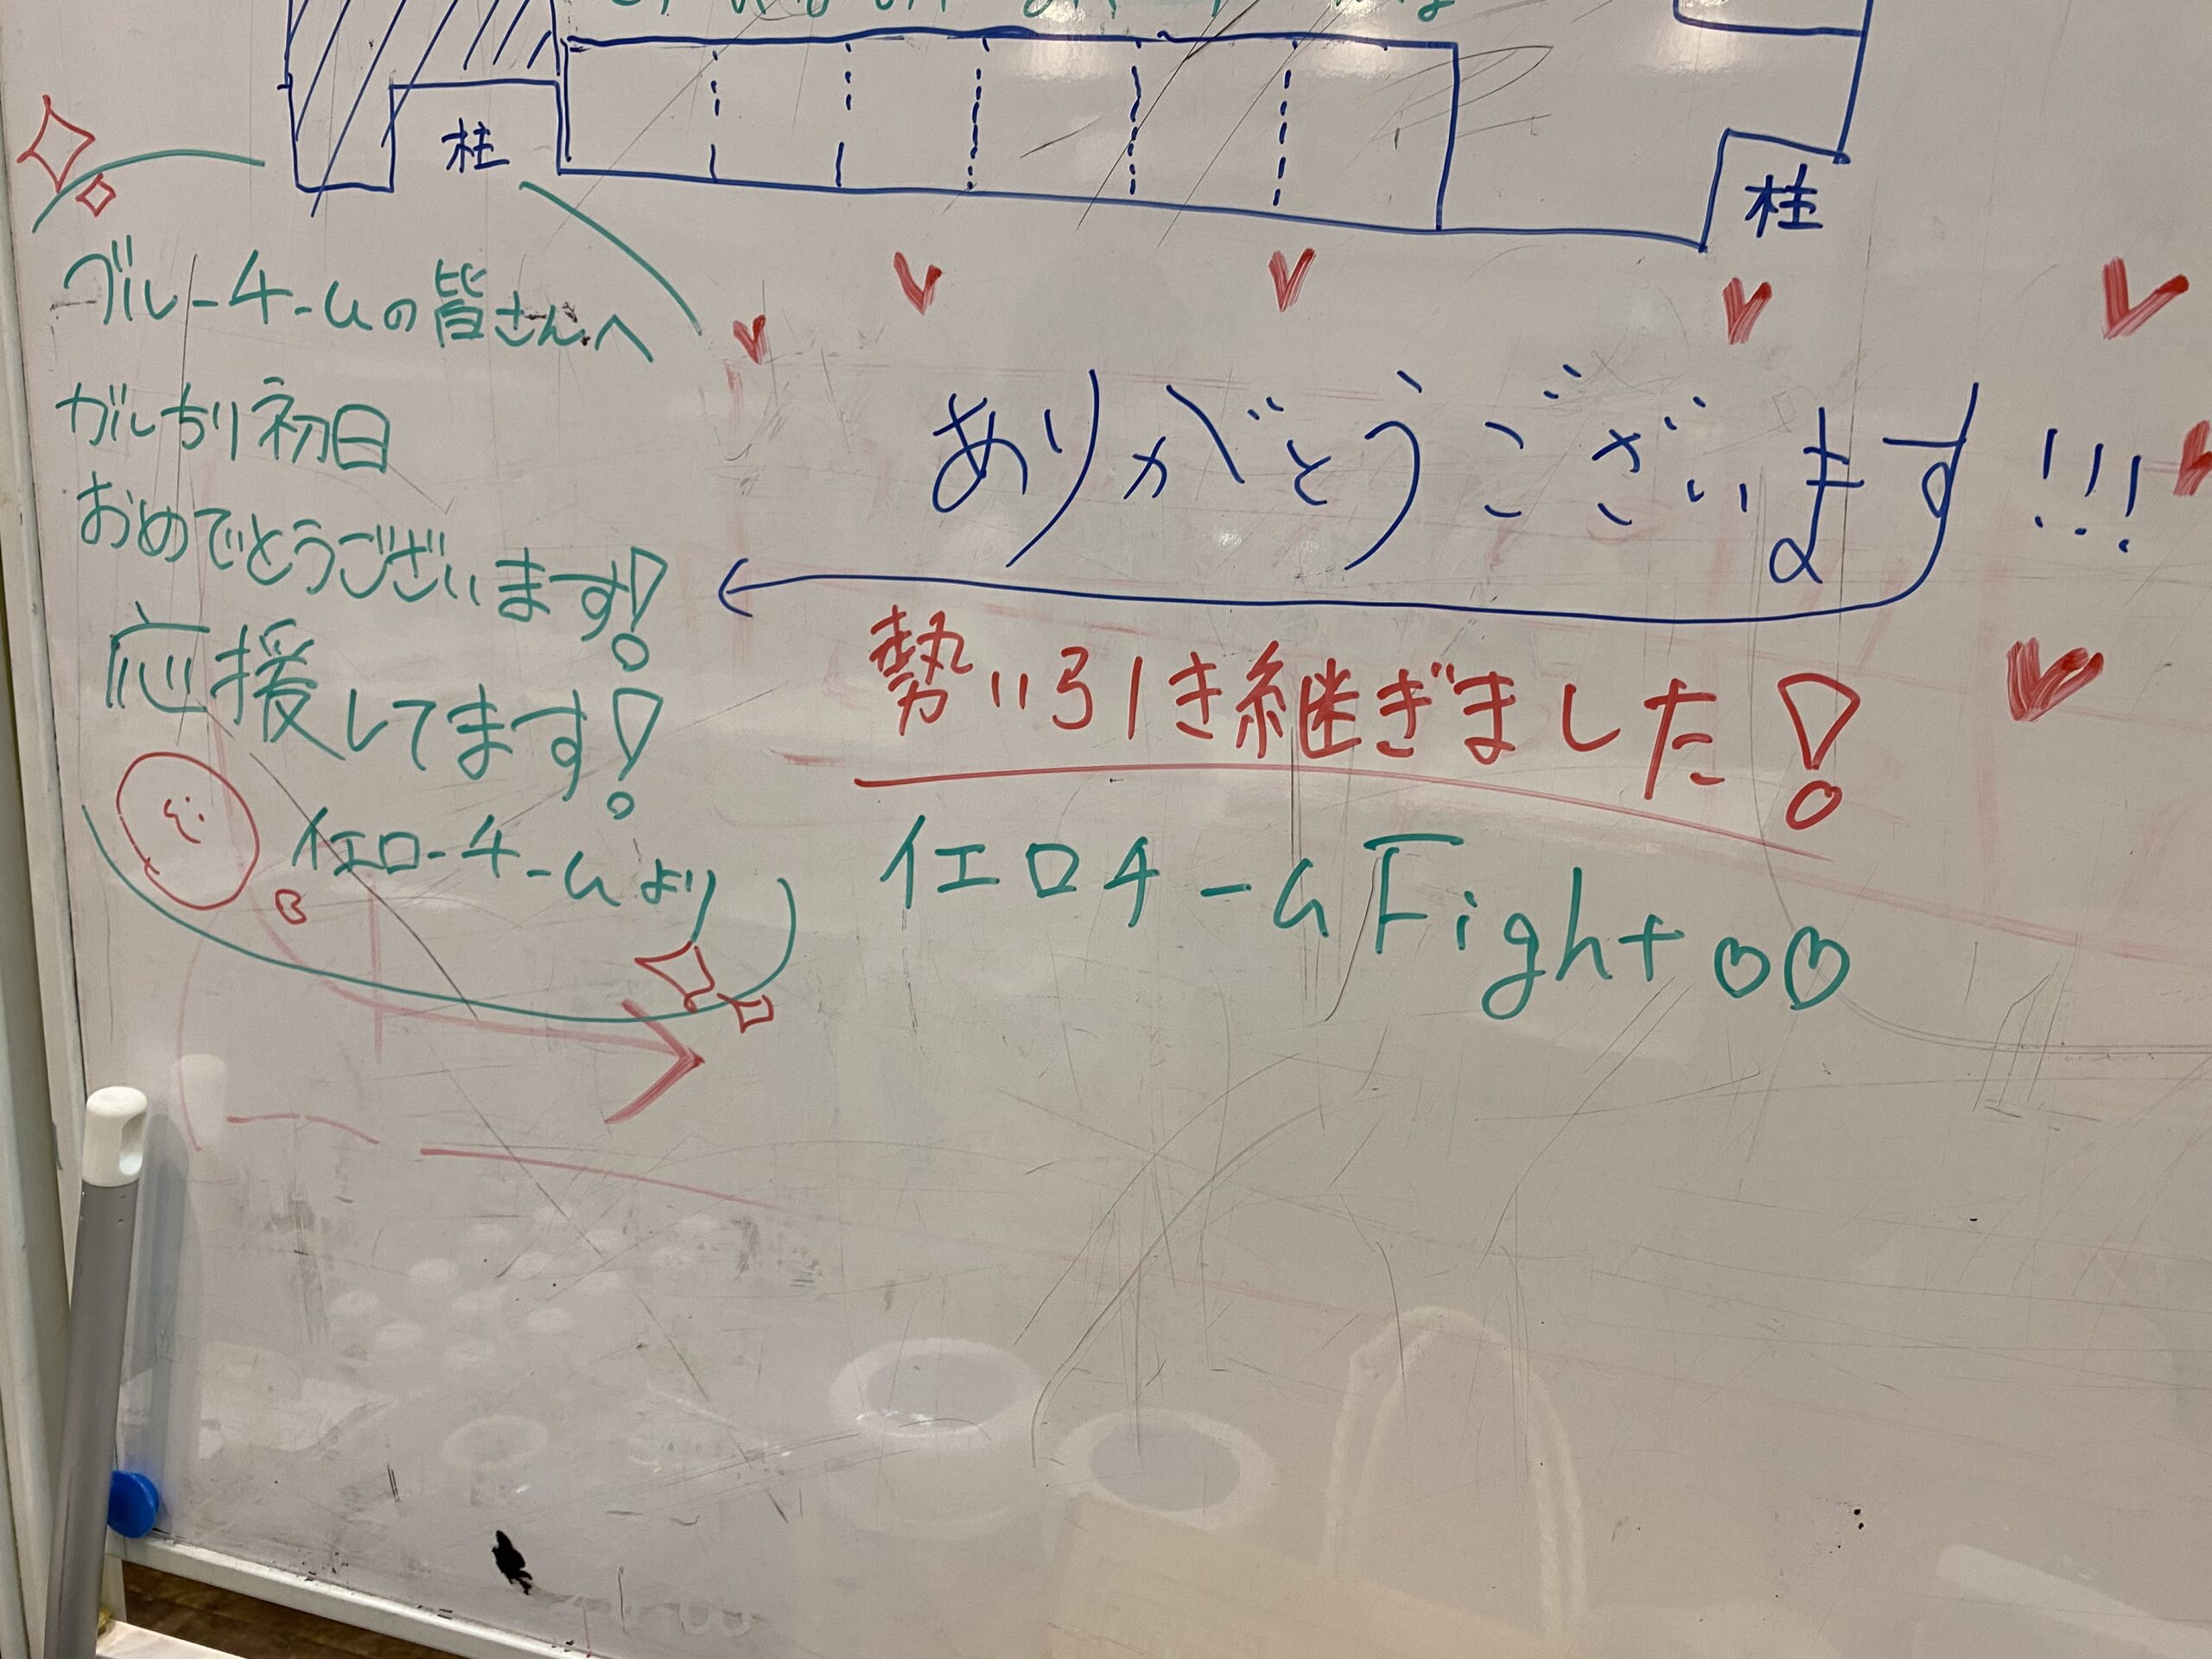 柱
柱
ブルーチームの皆さんへ
ガルちり初日
おめでとうございます!
応援してます!
イエローチームより
ありがとうございます!!!
勢い引き継ぎました!
イエロチームFight